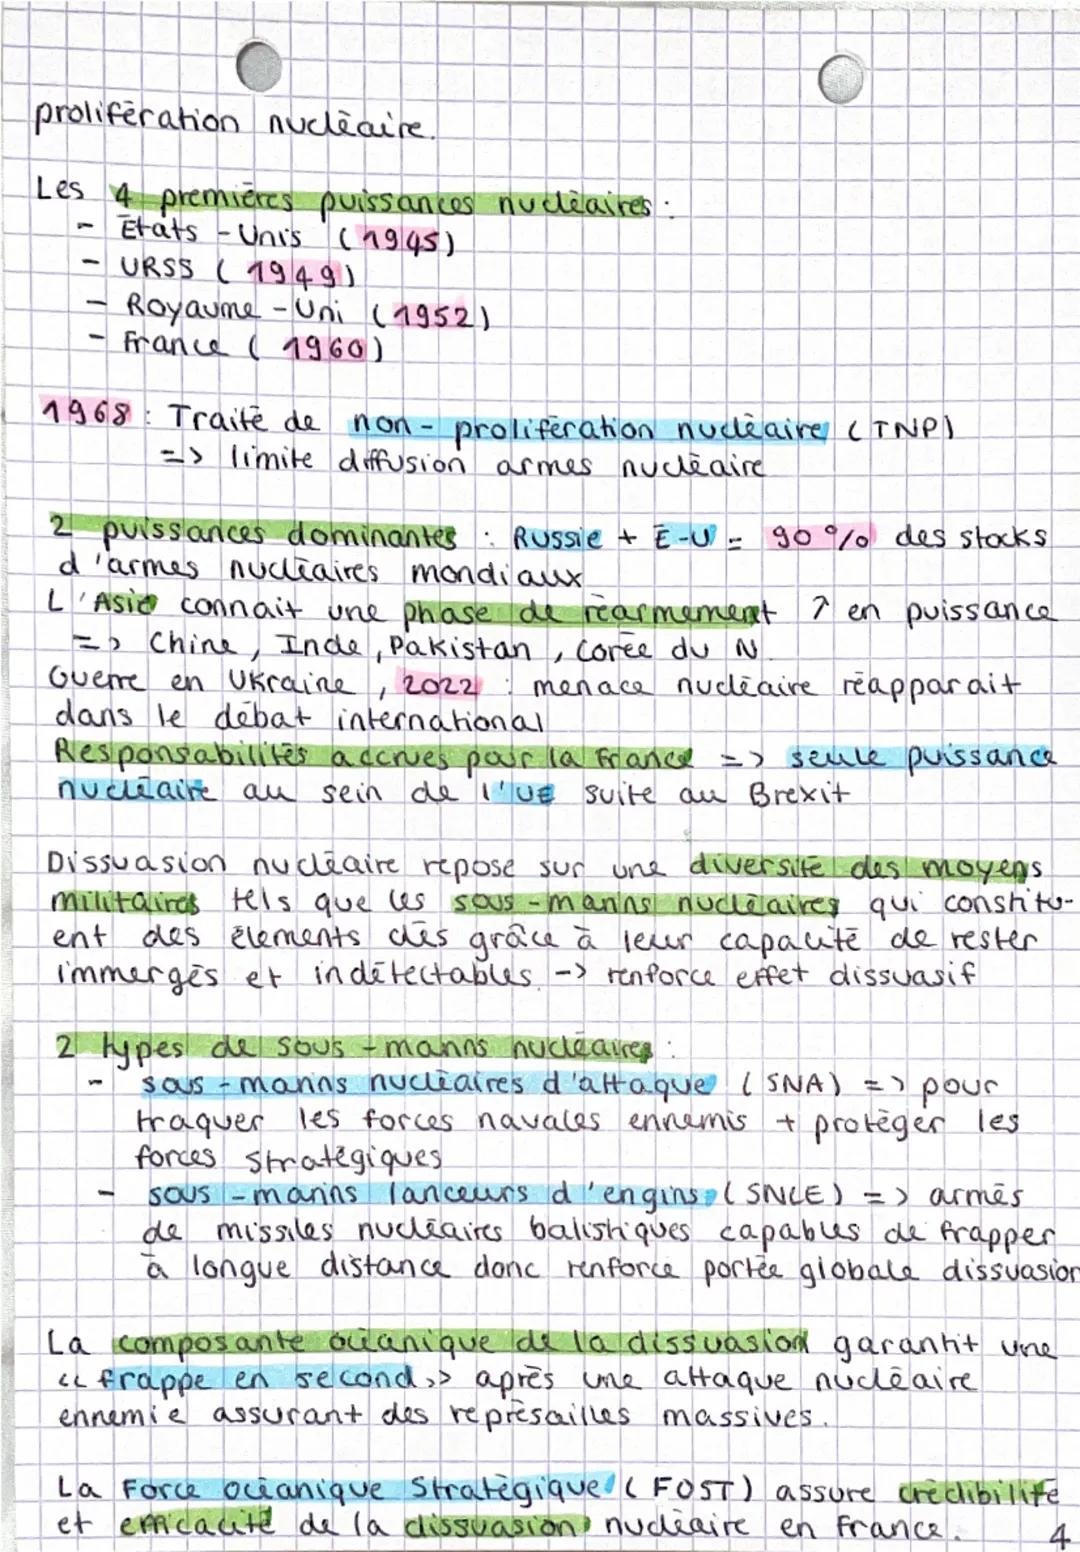 prolifération nucléaire.
Les 4 premières puissances nucléaires :
- États-Unis (1945)
- URSS (1949)
- Royaume-Uni (1952)
- France (1960)
1968 : Traité de non-prolifération nucléaire (TNP)
=> limite diffusion armes nucléaire
2 puissances dominantes : Russie + É-U = 90% des stocks
d'armes nucléaires mondiaux
L'Asie connait une phase de réarmement ↗ en puissance
=> Chine, Inde, Pakistan, Corée du N.
Guerre en Ukraine, 2022 : menace nucléaire réapparait
dans le débat international
Responsabilités accrues pour la France => seule puissance
nucléaire au sein de l'UE suite au Brexit
Dissuasion nucléaire repose sur une diversité des moyens
militaires tels que les sous-marins nucléaires qui constitu-
ent des élements clés grâce à leur capacité de rester
immergés et indétectables. -> renforce effet dissuasif
2 types de sous-marins nucléaires :
- sous-marins nucléaires d'attaque (SNA) => pour
traquer les forces navales ennemis + protéger les
forces stratégiques
- sous-marins lanceurs d'engins (SNLE) => armés
de missiles nucléaires balistiques capables de frapper
à longue distance donc renforce portée globale dissuasion
La composante océanique de la dissuasion garantit une
« frappe en second » après une attaque nucléaire
ennemie assurant des représailles massives.
La Force océanique Stratégique (FOST) assure crédibilité
et efficacité de la dissuasion nucléaire en France.
4